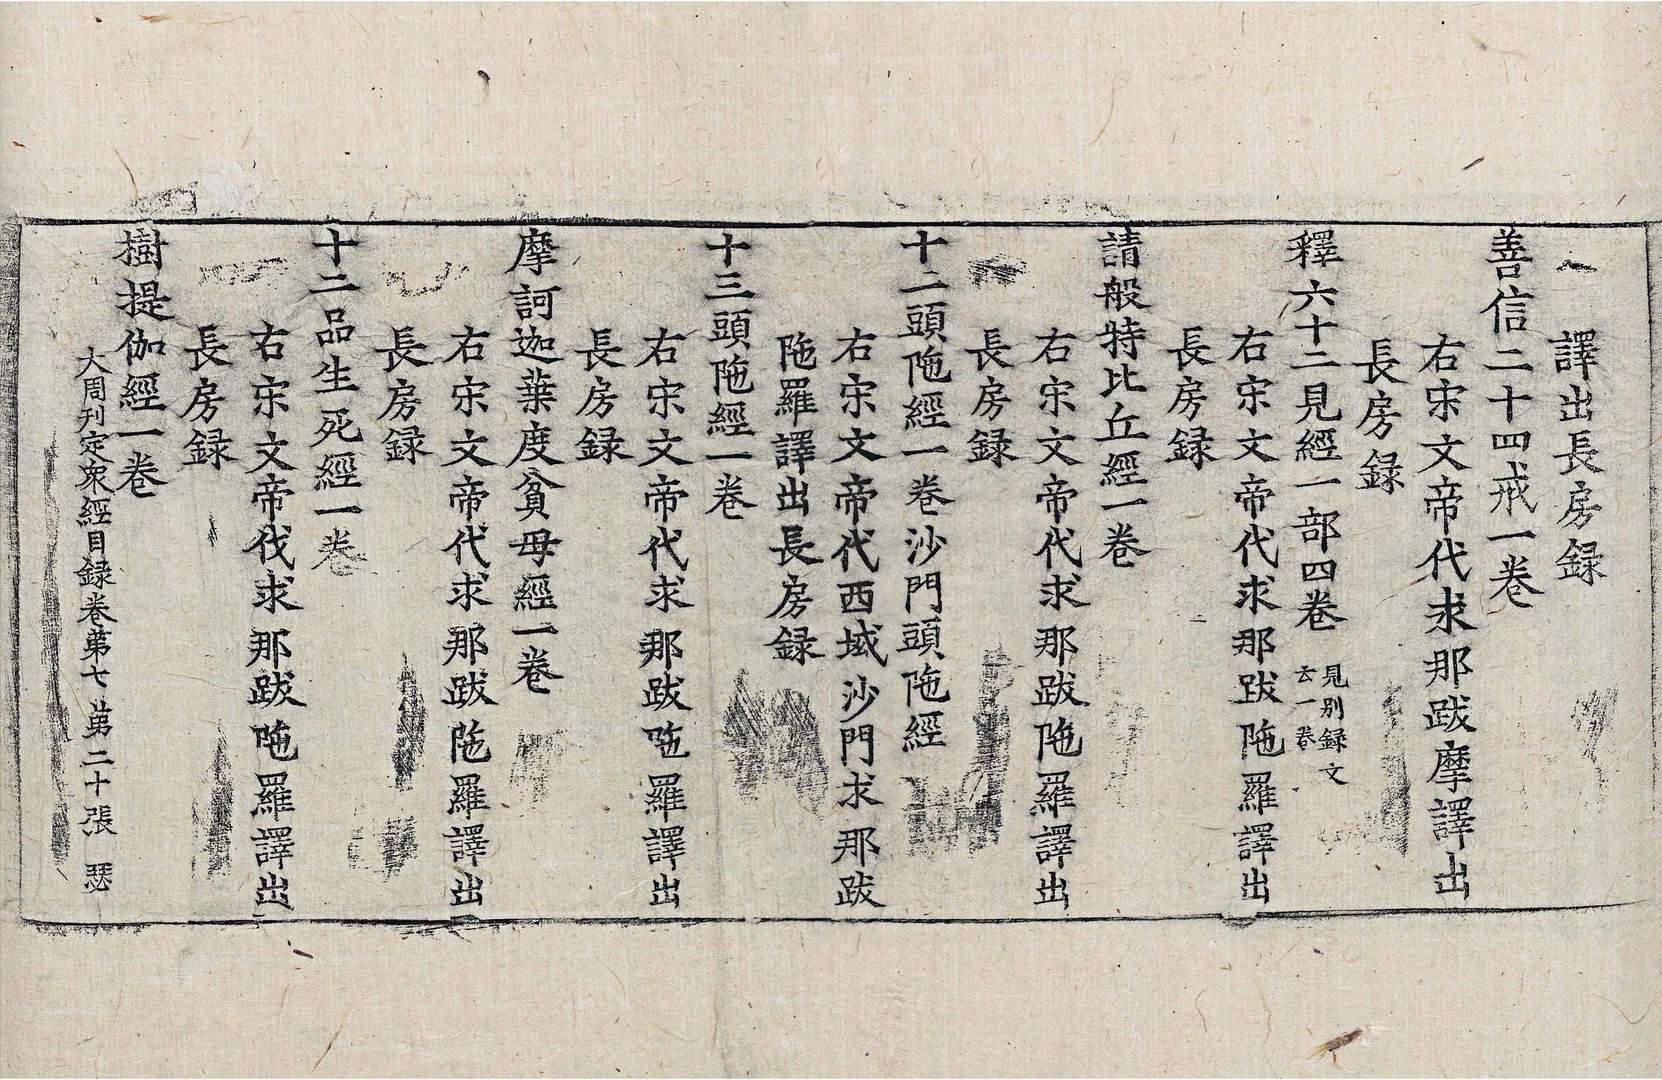 譯出長房録
善信二十四戒一卷
右宋文帝代求那跋摩譯出
長房録
釋六十二見經一部四卷 見別録文
云一卷
右宋文帝代求那跋陁羅譯出
長房録
請般特比丘經一卷
右宋文帝代求那跋陁羅譯出
長房録
十二頭陁經一卷沙門頭陁經
右宋文帝代西域沙門求那跋
陁羅譯出長房録
十三頭陁經一卷
右宋文帝代求那跋陁羅譯出
長房録
摩訶迦葉度貧母經一卷
右宋文帝代求那跋陁羅譯出
長房録
十二品生死經一卷
右宋文帝代求那跋陁羅譯出
長房録
樹提伽經一卷
大周刊定衆經目録卷第七 第二十張 瑟